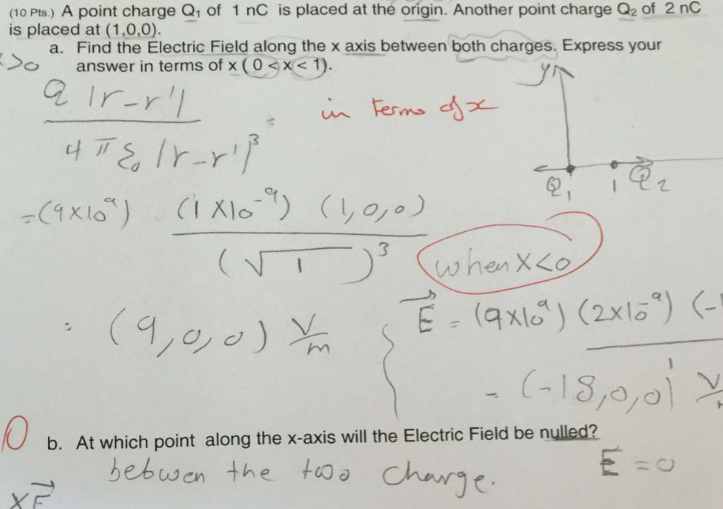 (10 Pts.) A point charge Q₁ of 1 nC is placed at the origin. Another point charge Q₂ of 2 nC
is placed at (1,0,0).
a. Find the Electric Field along the x axis between both charges. Express your
answer in terms of x (0<x<1).
>0
Q |r-r'|
4πε₀ |r-r'|³
=
in terms of x
y
Q₁ 1 Q₂
=(9x10⁹) (1x10⁻⁹) (1,0,0)
(√1)³
when x<0
: (9,0,0) V/m
E⃗ = (9x10⁹) (2x10⁻⁹) (-1
= (-18,0,0) V/
0
b. At which point along the x-axis will the Electric Field be nulled?
betwen the two charge.
E = 0
xE⃗